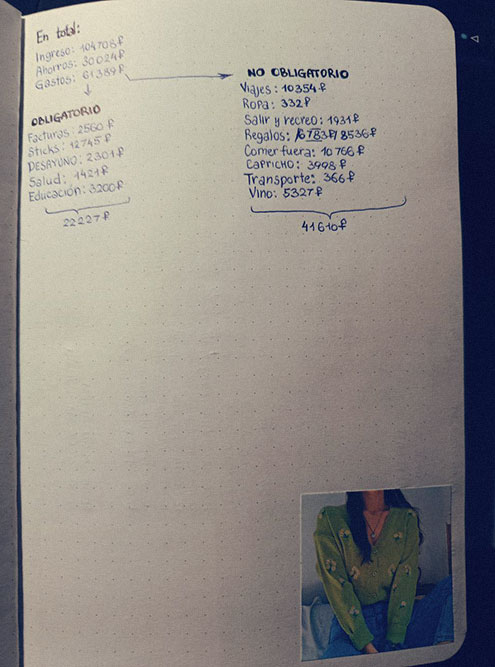 En total:
Ingreso: 104708₽
Ahorros: 30024₽
Gastos: 61389₽
OBLIGATORIO
Facturas: 2560₽
Sticks: 12745₽
DESAYUNO: 2301₽
Salud: 1421₽
Educación: 3200₽
22227₽
NO OBLIGATORIO
Viajes: 10354₽
Ropa: 332₽
Salir y recreo: 1931₽
Regalos: 8536₽
Comer fuera: 10766₽
CAPRICHO: 3998₽
Transporte: 366₽
Vino: 5327₽
41610₽